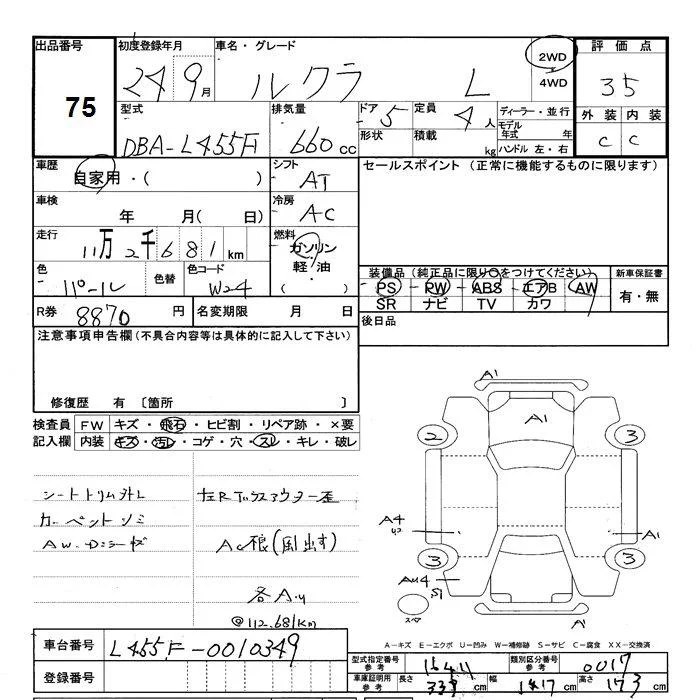 出品番号
75
初度登録年月
24 9月
車名・グレード
ルクラ L
2WD
4WD
評価点
35
外装 内装
C C
型式
DBA-L455F
排気量
660cc
ドア 5
形状
定員 4人
積載 kg
ディーラー・並行
モデル年式 年
ハンドル 左・右
車歴
自家用・( )
シフト
AT
車検
年 月( 日)
冷房
AC
走行
11万2千681km
燃料
ガソリン
軽・油
( )
色
パール
色替
色コード
W24
R券 8870円
名変期限 月 日
セールスポイント (正常に機能するものに限ります)
装備品(純正品に限り○をつけてください)
PS・PW・ABS・エアB AW
SR ナビ TV カワ
新車保証書
有・無
後日品
注意事項申告欄(不具合内容等は具体的に記入して下さい)
修復歴 有 〔箇所 〕
検査員 FW キズ・飛石・ヒビ割・リペア跡・×要
記入欄 内装 キズ・汚レ・コゲ・穴・スレ・キレ・破レ
シートトリム外レ
カーペットシミ
AW
左R
歪
(風出ず)
各A
@112,681km
A1
A1
2
3
A4
A1
3
3
スペア
S1
A1
A-キズ E-エクボ U-凹み W-補修跡 S-サビ C-腐食 XX-交換済
車台番号 L455F-0010349
登録番号
型式指定番号 参考 16411
類別区分番号 参考 0017
車庫証明用 参考 長さ 339cm 幅 147cm 高さ 173cm